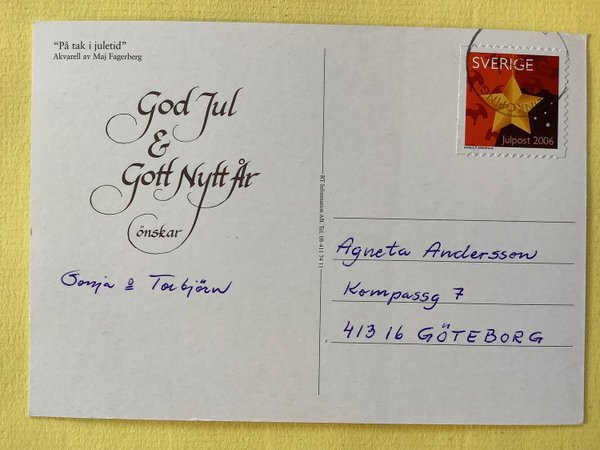 "På tak i juletid"
Akvarell av Maj Fagerberg
God Jul
&
Gott Nytt År
önskar
Sonja o Torbjörn
SVERIGE
Julpost 2006
RT Information AB. Tel. 08-411 74 11
Agneta Andersson
Kompassg 7
413 16 GÖTEBORG